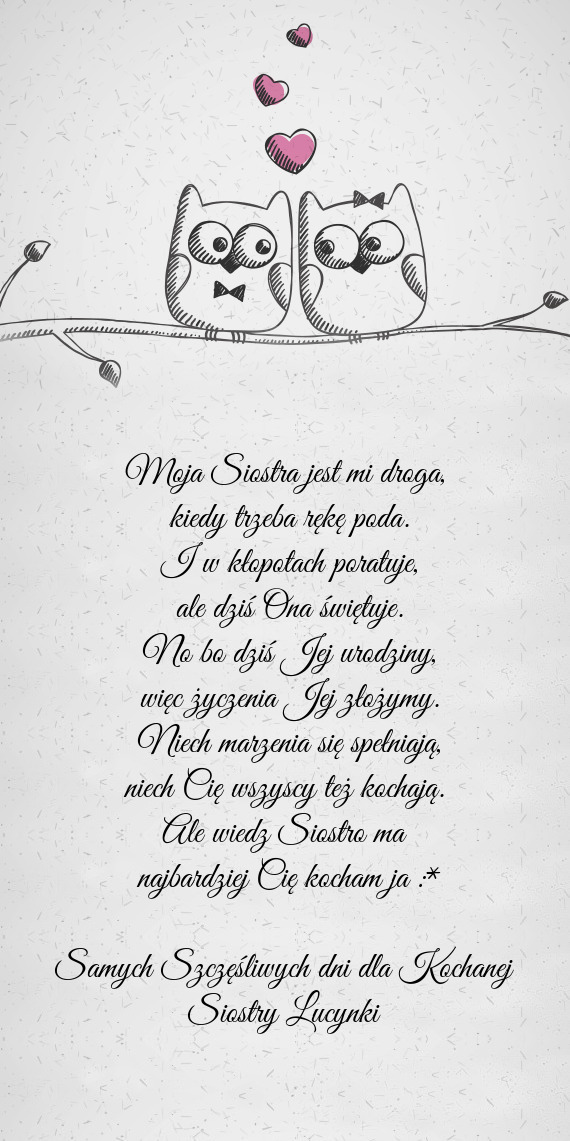 Moja Siostra jest mi droga,
kiedy trzeba rękę poda.
I w kłopotach poratuje,
ale dziś Ona świętuje.
No bo dziś Jej urodziny,
więc życzenia Jej złożymy.
Niech marzenia się spełniają,
niech Cię wszyscy też kochają.
Ale wiedz Siostro ma
najbardziej Cię kocham ja :*
Samych Szczęśliwych dni dla Kochanej
Siostry Lucynki